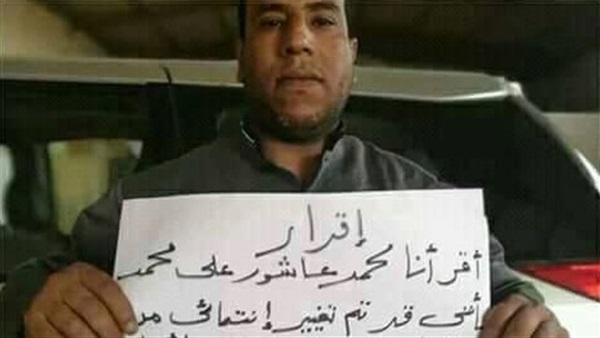 إقرار
أقر أنا محمد عاشور على محمد
بأننى قد تم تغيير إنتمائى من